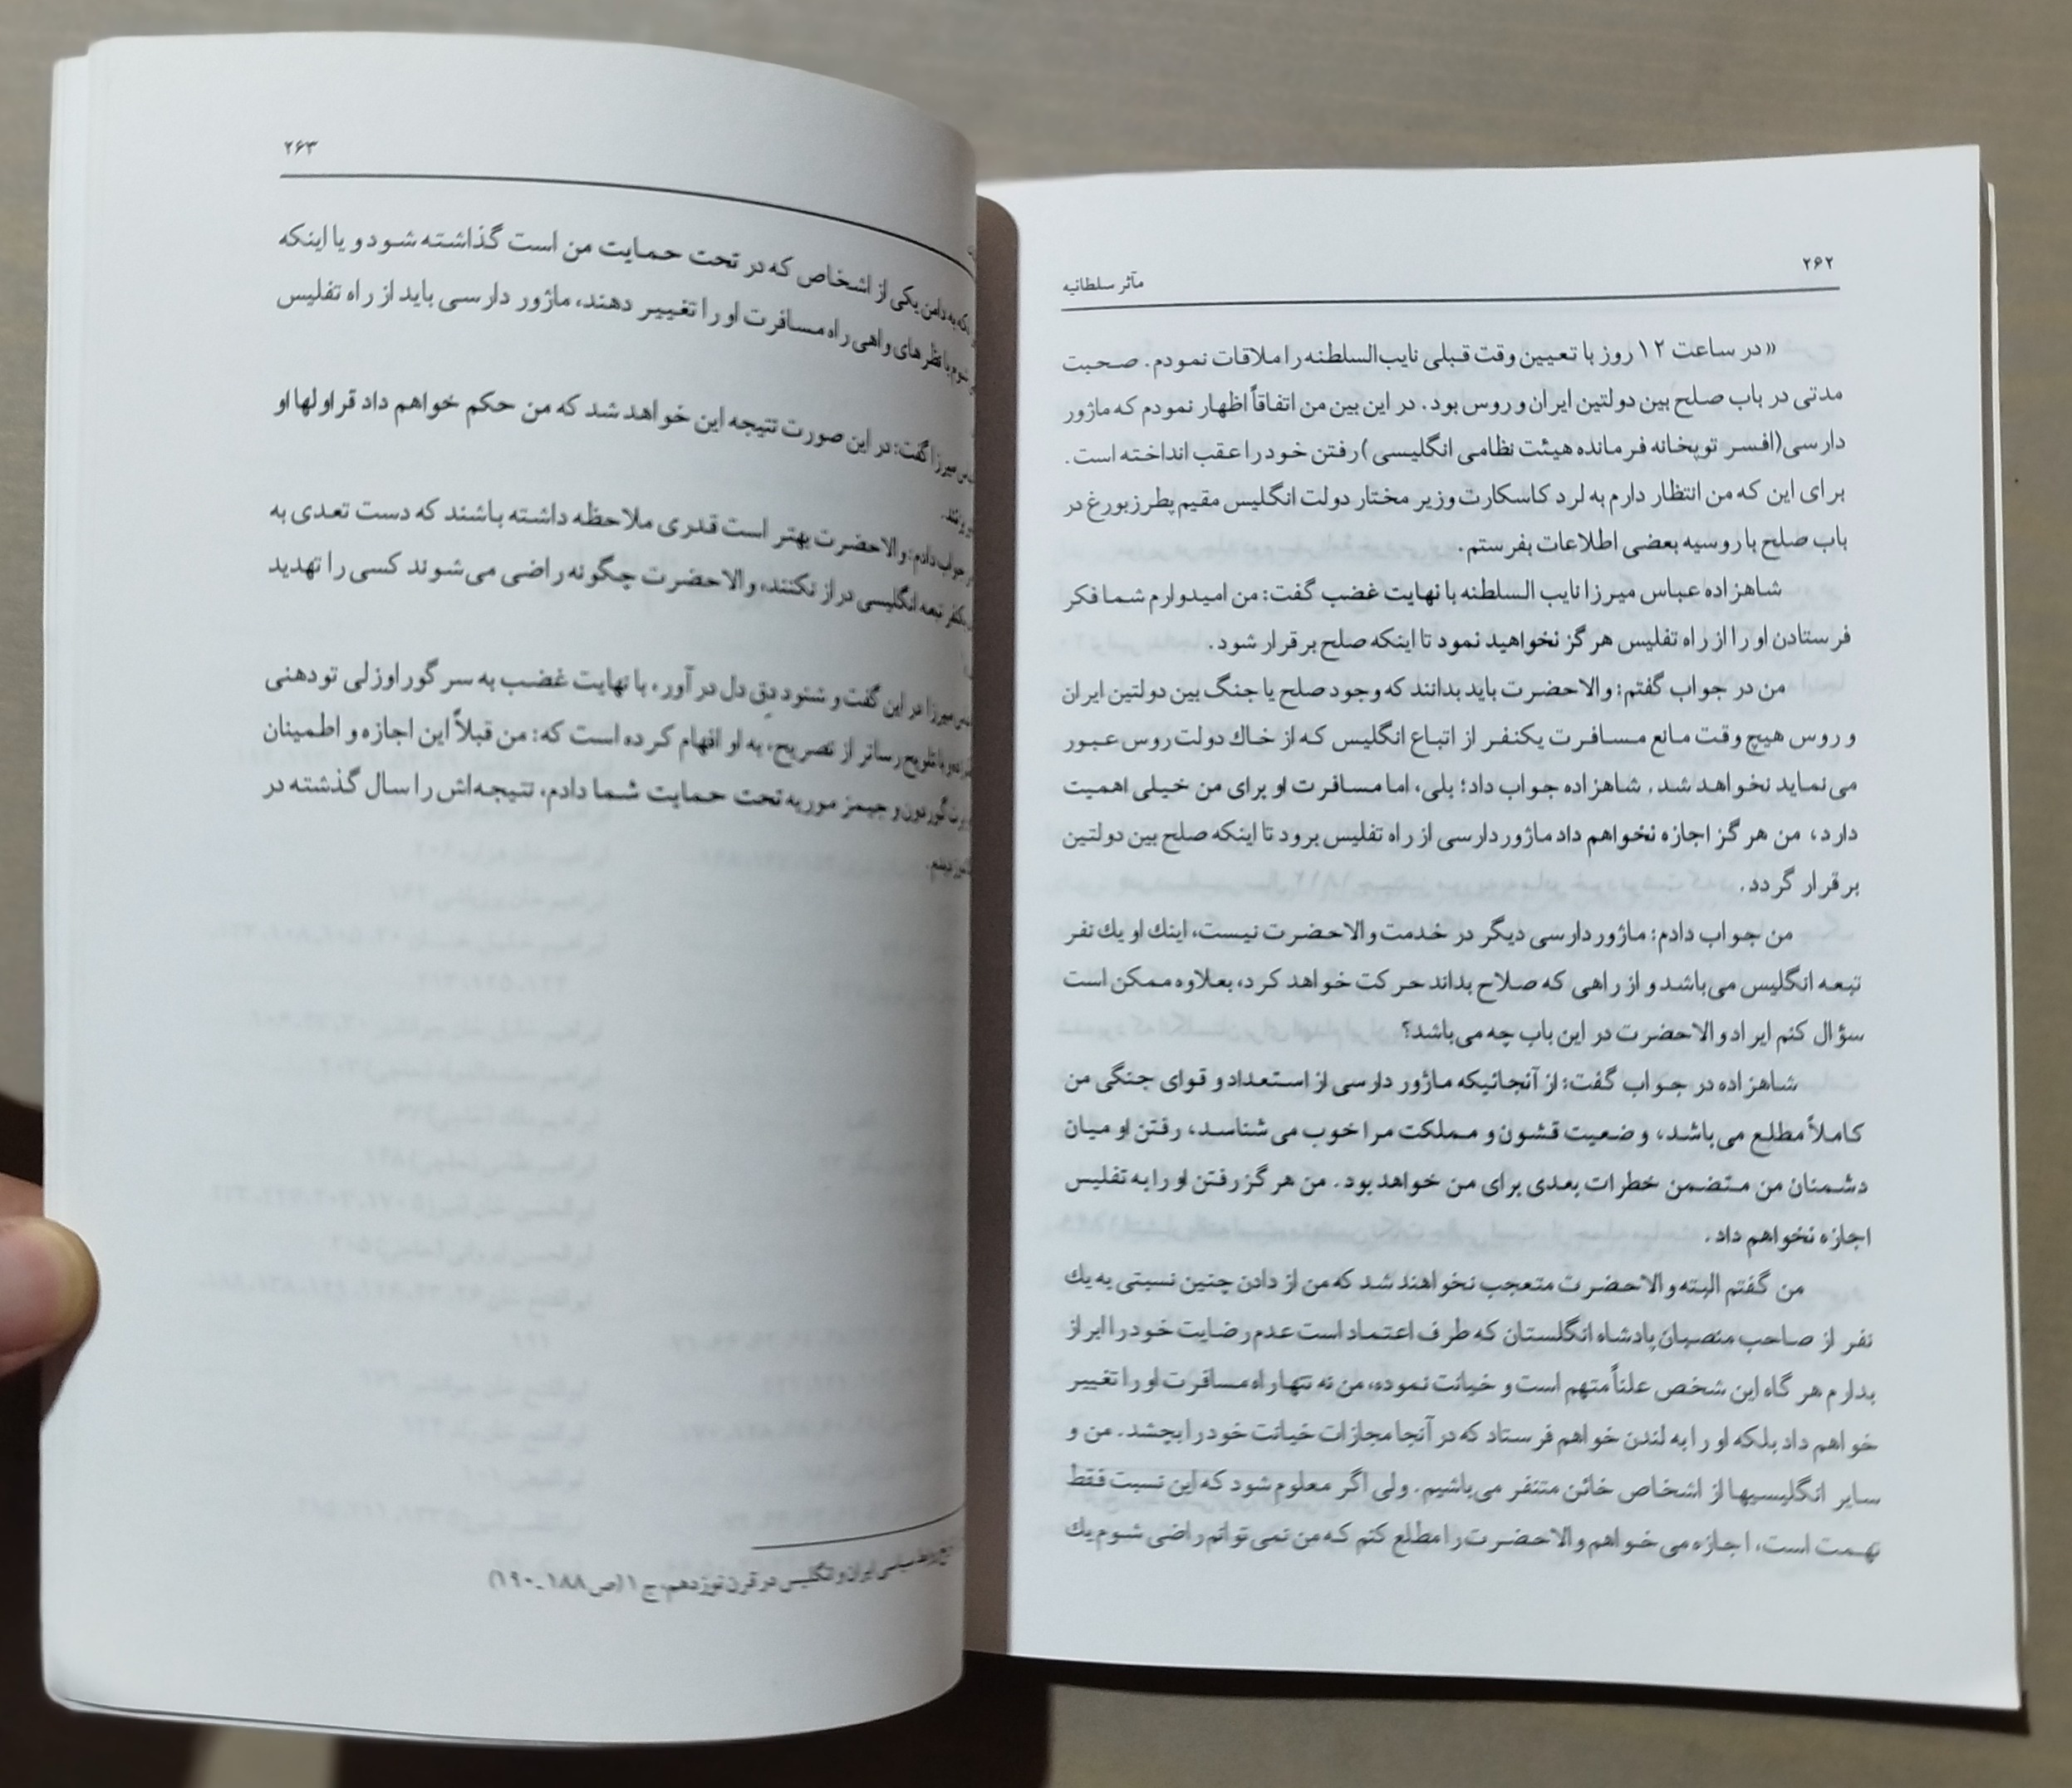 ۲۶۲
مآثر سلطانیه
«در ساعت ۱۲ روز با تعیین وقت قبلی نایب‌السلطنه را ملاقات نمودم. صحبت
مدتی در باب صلح بین دولتین ایران و روس بود. در این بین من اتفاقاً اظهار نمودم که ماژور
دارسی (افسر توپخانه فرمانده هیئت نظامی انگلیسی) رفتن خود را عقب انداخته است.
برای این که من انتظار دارم به لرد کاسکارت وزیر مختار دولت انگلیس مقیم پطرزبورغ در
باب صلح با روسیه بعضی اطلاعات بفرستم.
شاهزاده عباس میرزا نایب السلطنه با نهایت غضب گفت: من امیدوارم شما فکر
فرستادن او را از راه تفلیس هرگز نخواهید نمود تا اینکه صلح برقرار شود.
من در جواب گفتم: والاحضرت باید بدانند که وجود صلح یا جنگ بین دولتین ایران
و روس هیچ وقت مانع مسافرت یکنفر از اتباع انگلیس که از خاك دولت روس عبور
می‌نماید نخواهد شد. شاهزاده جواب داد؛ بلی، اما مسافرت او برای من خیلی اهمیت
دارد، من هرگز اجازه نخواهم داد ماژور دارسی از راه تفلیس برود تا اینکه صلح بین دولتین
برقرار گردد.
من جواب دادم: ماژور دارسی دیگر در خدمت والاحضرت نیست، اینك او یك نفر
تبعه انگلیس می‌باشد و از راهی که صلاح بداند حرکت خواهد کرد، بعلاوه ممکن است
سؤال کنم ایراد والاحضرت در این باب چه می‌باشد؟
شاهزاده در جواب گفت: از آنجائیکه ماژور دارسی از استعداد و قوای جنگی من
کاملاً مطلع می‌باشد، وضعیت قشون و مملکت مرا خوب می‌شناسد، رفتن او میان
دشمنان من متضمن خطرات بعدی برای من خواهد بود. من هرگز رفتن او را به تفلیس
اجازه نخواهم داد.
من گفتم البته والاحضرت متعجب نخواهند شد که من از دادن چنین نسبتی به یك
نفر از صاحب منصبان پادشاه انگلستان که طرف اعتماد است عدم رضایت خود را ابراز
بدارم هر گاه این شخص علناً متهم است و خیانت نموده، من نه تنها راه مسافرت او را تغییر
خواهم داد بلکه او را به لندن خواهم فرستاد که در آنجا مجازات خیانت خود را بچشد. من و
سایر انگلیسیها از اشخاص خائن متنفر می‌باشیم. ولی اگر معلوم شود که این نسبت فقط
تهمت است، اجازه می‌خواهم والاحضرت را مطلع کنم که من نمی‌توانم راضی شوم یك
۲۶۳
که به دامن یکی از اشخاص که در تحت حمایت من است گذاشته شود و یا اینکه
شوم با نظرهای واهی راه مسافرت او را تغییر دهند، ماژور دارسی باید از راه تفلیس
میرزا گفت: در این صورت نتیجه این خواهد شد که من حکم خواهم داد قراولها او
جواب دادم: والاحضرت بهتر است قدری ملاحظه داشته باشند که دست تعدی به
تبعه انگلیسی دراز نکنند، والاحضرت چگونه راضی می‌شوند کسی را تهدید
میرزا در این گفت و شنود دقِ دل در آور، با نهایت غضب به سر گوراوزلی تودهنی
با تلویح رساتر از تصریح، به او افهام کرده است که: من قبلاً این اجازه و اطمینان
گوردون و جیمز موریه تحت حمایت شما دادم، نتیجه‌اش را سال گذشته در
دیدم.
سیاسی ایران و انگلیس در قرن نوزدهم، ج ۱ (ص ۱۸۸ ـ ۱۹۰)